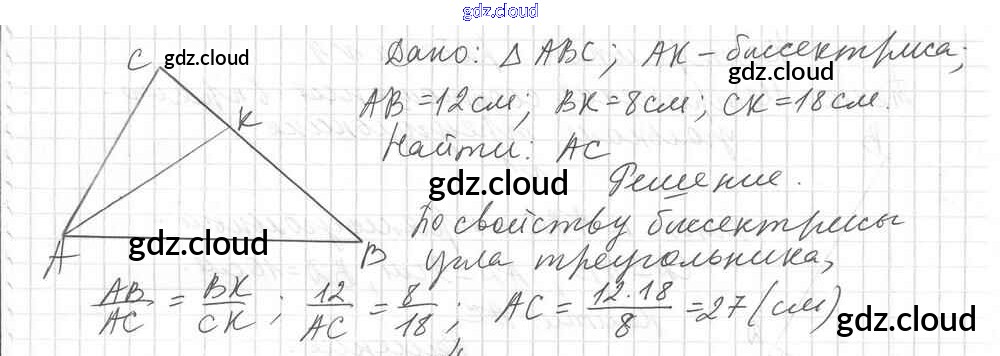 gdz.cloud
Дано: △ ABC; AK - биссектриса;
gdz.cloud
gdz.cloud
AB = 12 см; BK = 8 см; CK = 18 см.
Найти: AC
gdz.cloud
gdz.cloud
Решение.
По свойству биссектрисы
угла треугольника,
C
K
A
B
gdz.cloud
AB/AC = BK/CK; 12/AC = 8/18; AC = 12·18/8 = 27 (см)
gdz.cloud